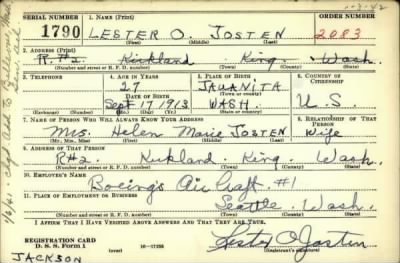 SERIAL NUMBER 1. NAME (Print) ORDER NUMBER
1790 LESTER O. JOSTEN 2083
(First) (Middle) (Last)
2. ADDRESS (Print)
R.#2. Kirkland King Wash.
(Number and street or R. F. D. number) (Town) (County) (State)
3. TELEPHONE 4. AGE IN YEARS 5. PLACE OF BIRTH 6. COUNTRY OF CITIZENSHIP
27 JAUANITA
DATE OF BIRTH (Town or county)
Sept 17 1913 WASH. U.S.
(Exchange) (Number) (Mo.) (Day) (Yr.) (State or country)
7. NAME OF PERSON WHO WILL ALWAYS KNOW YOUR ADDRESS 8. RELATIONSHIP OF THAT PERSON
Mrs. Helen Marie JOSTEN Wife
(Mr., Mrs., Miss) (First) (Middle) (Last)
9. ADDRESS OF THAT PERSON
R#2. Kirkland. King Wash.
(Number and street or R. F. D. number) (Town) (County) (State)
10. EMPLOYER'S NAME
Boeings Air Craft. #1
11. PLACE OF EMPLOYMENT OR BUSINESS
Seattle Wash.
(Number and street or R. F. D. number) (Town) (County) (State)
I AFFIRM THAT I HAVE VERIFIED ABOVE ANSWERS AND THAT THEY ARE TRUE.
REGISTRATION CARD
D. S. S. FORM 1 (over) 16-17105 Lester O Josten
(Registrant's signature)
JACKSON